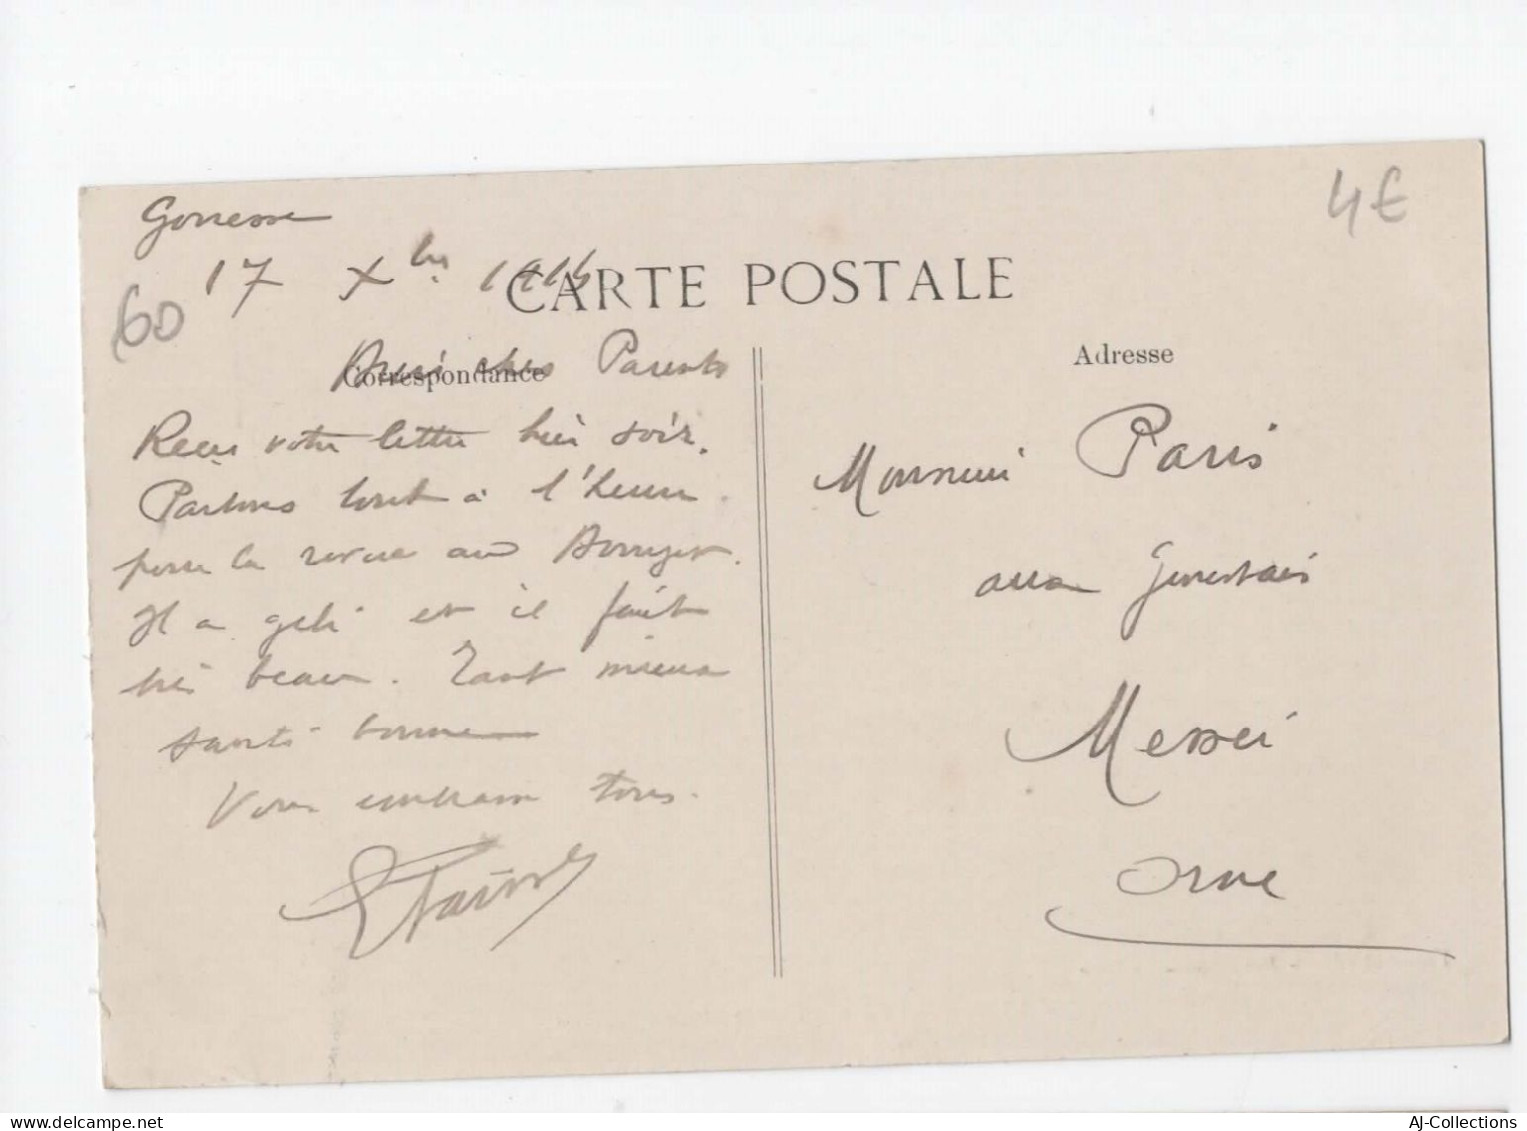 Gonesse
17 Xbre 1914
CARTE POSTALE
4€
60
Correspondance
chers Parents
Reçu votre lettre hier soir.
Partons tout à l'heure
pour la revue au Bourget.
Il a gelé et il fait
très beau. Tant mieux
santé bonne
Vous embrasse tous.
Adresse
Monsieur Paris
aux Genestais
Messei
Orne
AJ-Collections
delcampe.net